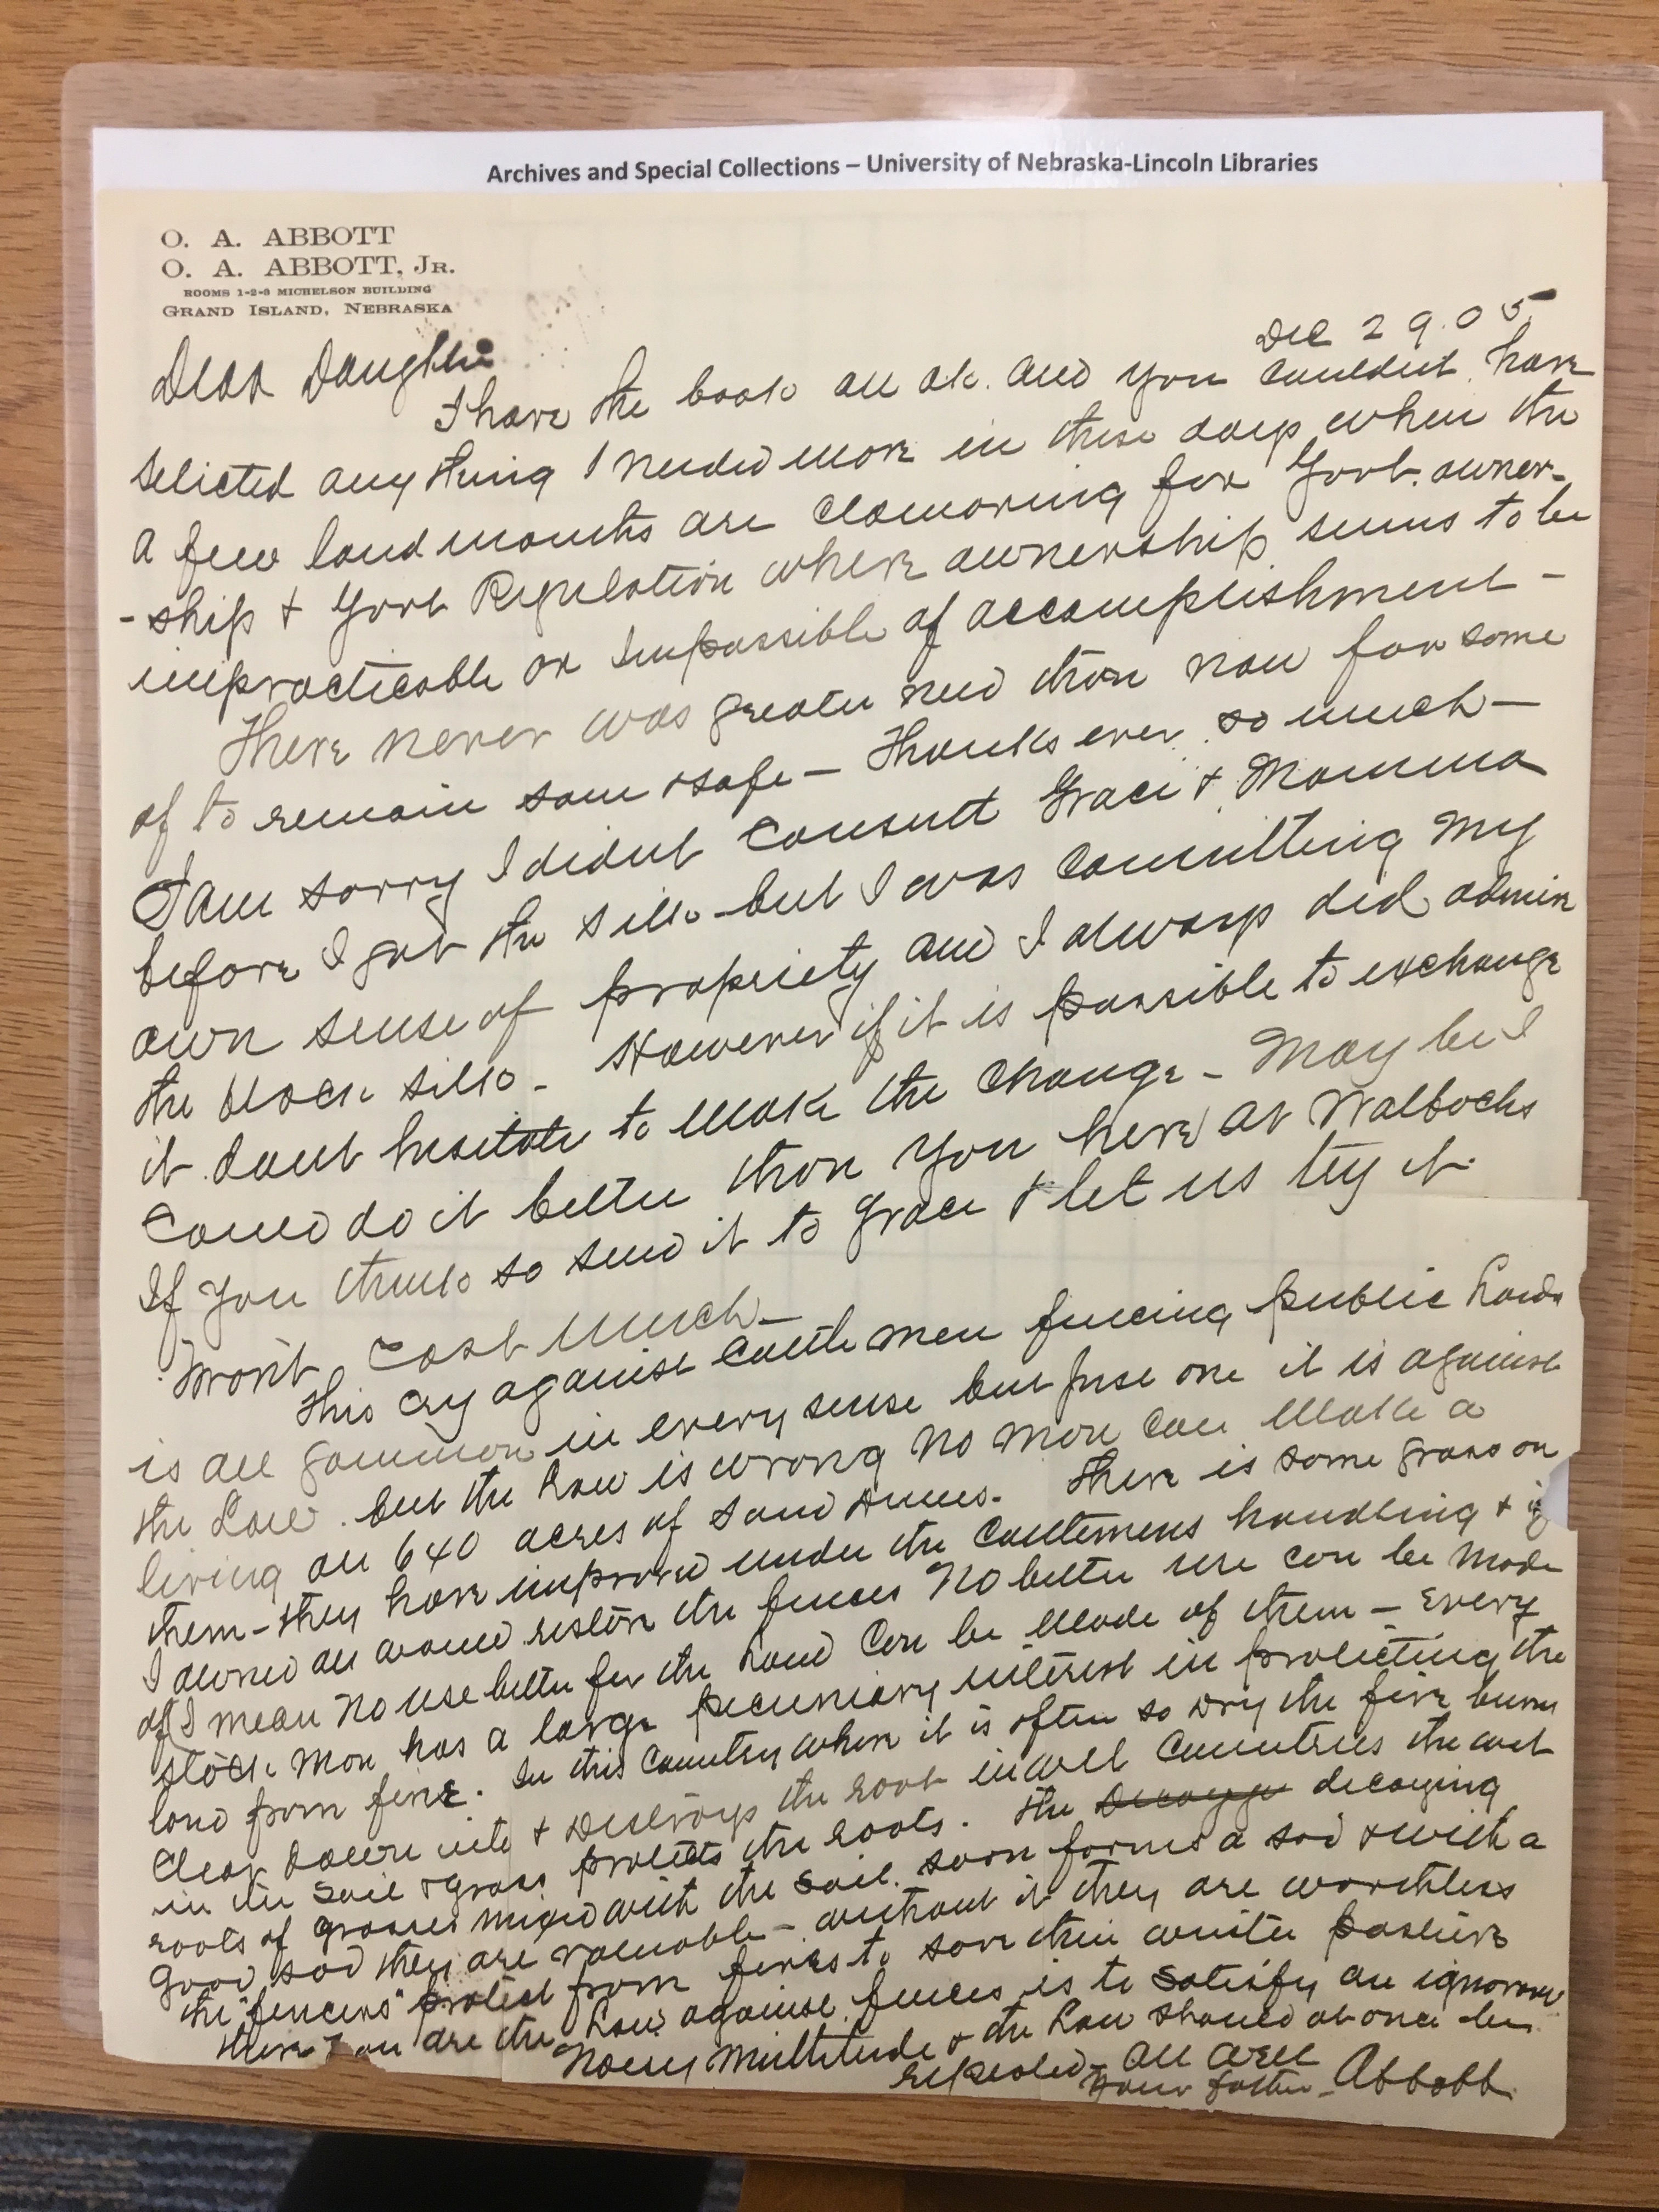 Archives and Special Collections – University of Nebraska-Lincoln Libraries
O. A. ABBOTT
O. A. ABBOTT, JR.
ROOMS 1-2-3 MICHELSON BUILDING
GRAND ISLAND, NEBRASKA
Dec 29. 05
Dear Daughter
I have the book all ok. and you couldnt have
selected any thing I needed more in these days when the
a few loud mouths are clamoring for Govt. owner-
-ship & Govt Regulation where ownership seems to be
impracticable or impossible of accomplishment -
There never was greater need than now for some
of to remain sane & safe - Thanks ever so much -
I am sorry I didnt consult Grace & Mamma
before I got the silk - but I was consulting my
own sense of propriety and I always did admire
the black silk - However if it is possible to exchange
it dont hesitate to make the change - May be I
could do it better than you here at Wolbachs
If you think so send it to Grace & let us try it.
Wont cost much -
This cry against cattle men fencing public lands
is all gammon in every sense but just one it is against
the Law. but the Law is wrong no man can make a
living on 640 acres of sand dunes. There is some grass on
them - they have improved under the cattlemens handling & if
I owned all would restore the fences No better use can be made
of I mean no use better for the land can be made of them - Every
stock man has a large pecuniary interest in protecting the
land from fire. In this country when it is often so dry the fire burns
clear down into & destroys the root in wet countries the wet
in the soil & grass protects the roots. The decaying
roots of grasses mixed with the soil soon forms a sod & with a
good sod they are valuable - without it they are worthless
the "fencers" protect from fires to save their winter pasture
there you are the Law against fences is to satisfy an ignorant
noisy multitude & the Law should at once be
repealed - All well
Your father - Abbott